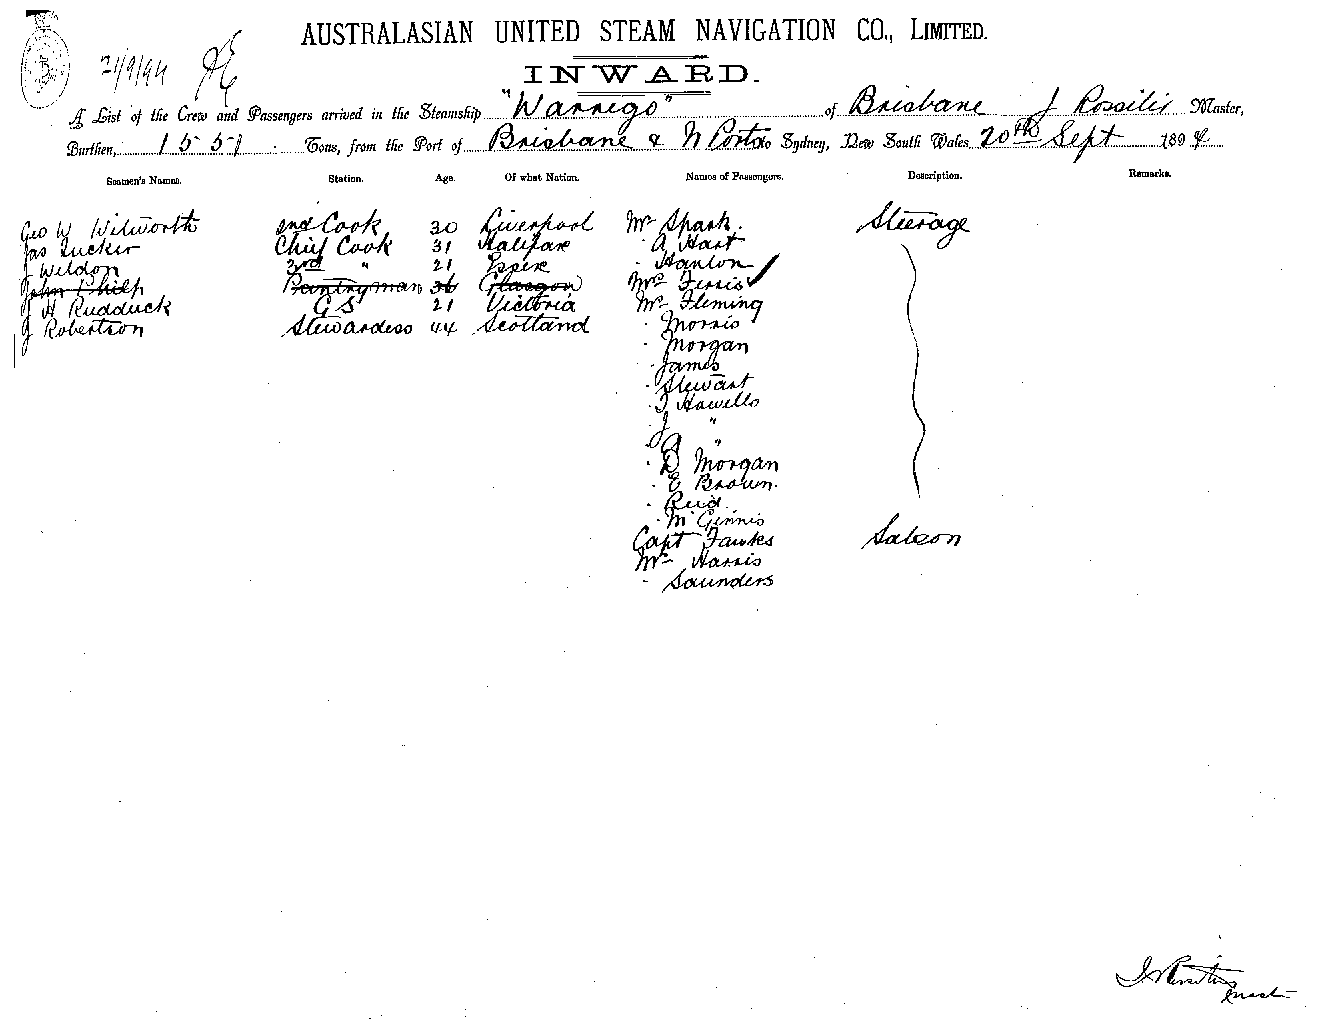 AUSTRALASIAN UNITED STEAM NAVIGATION CO., LIMITED.
21/9/94
INWARD.
A List of the Crew and Passengers arrived in the Steamship "Warrego" of Brisbane J Rossiter Master,
Burthen, 1551 Tons, from the Port of Brisbane & N Ports to Sydney, New South Wales 20th Sept 1894
Seamen's Names. Station. Age. Of what Nation. Names of Passengers. Description. Remarks.
Geo W Wilworth 2nd Cook 30 Liverpool Mr Spark. Steerage
Jas Tucker Chief Cook 31 Halifax " A Hart
J Weldon 3rd " 21 Essex " Hanlon
John Philp Pantryman 36 Glasgow Mrs Ferris
J H Rudduck GS 21 Victoria Mr Fleming
J Robertson Stewardess 44 Scotland " Morris
" Morgan
" James
" Stewart
" T Hawells
" J "
" A "
" D Morgan
" E Brown.
" Reid
" McGinnis
Capt Fawks Saloon
Mr Harris
" Saunders
J Rossiter